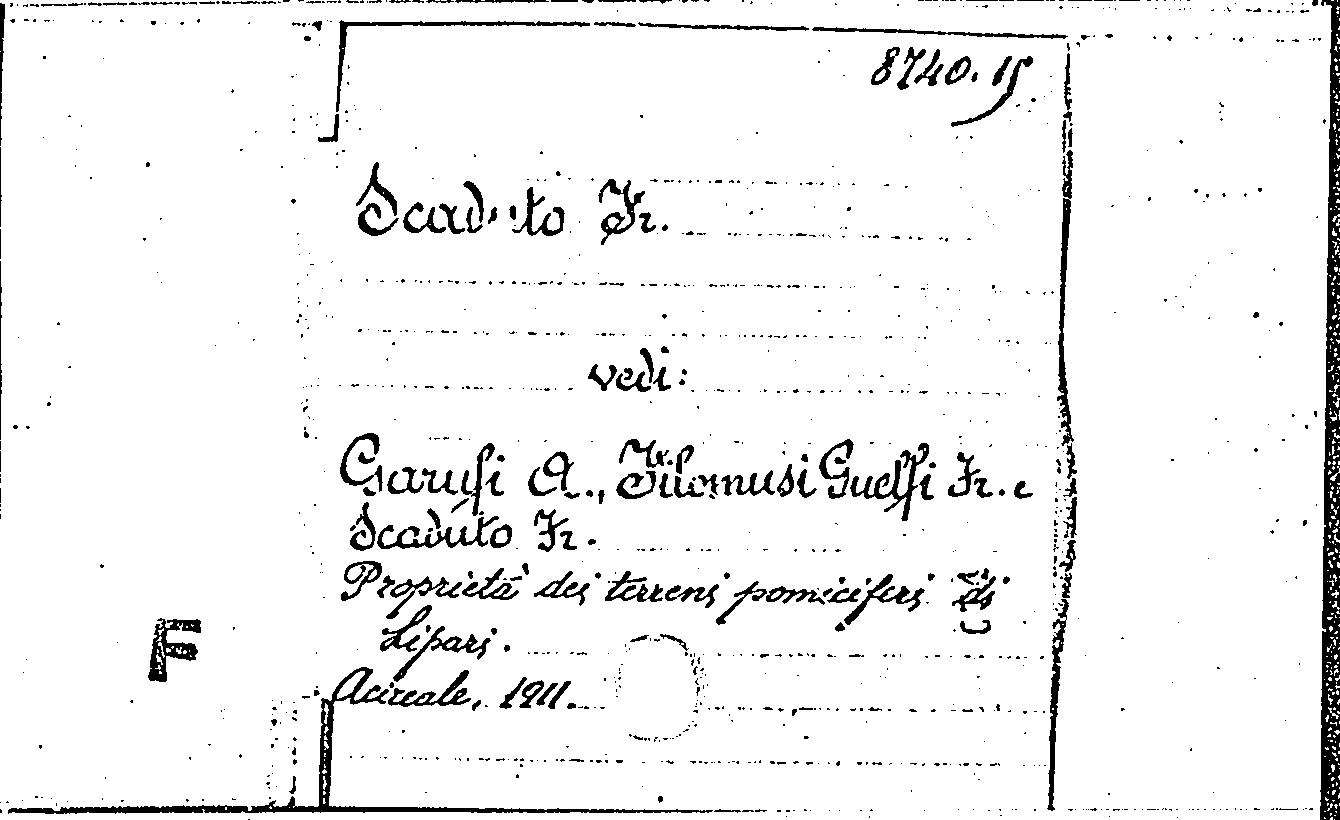 8740.15
Scaduto Fr.
vedi:
Garufi A., Filomusi Guelfi Fr. e
Scaduto Fr.
Proprietà dei terreni pomiciferi di
Lipari.
Acireale, 1911.
F